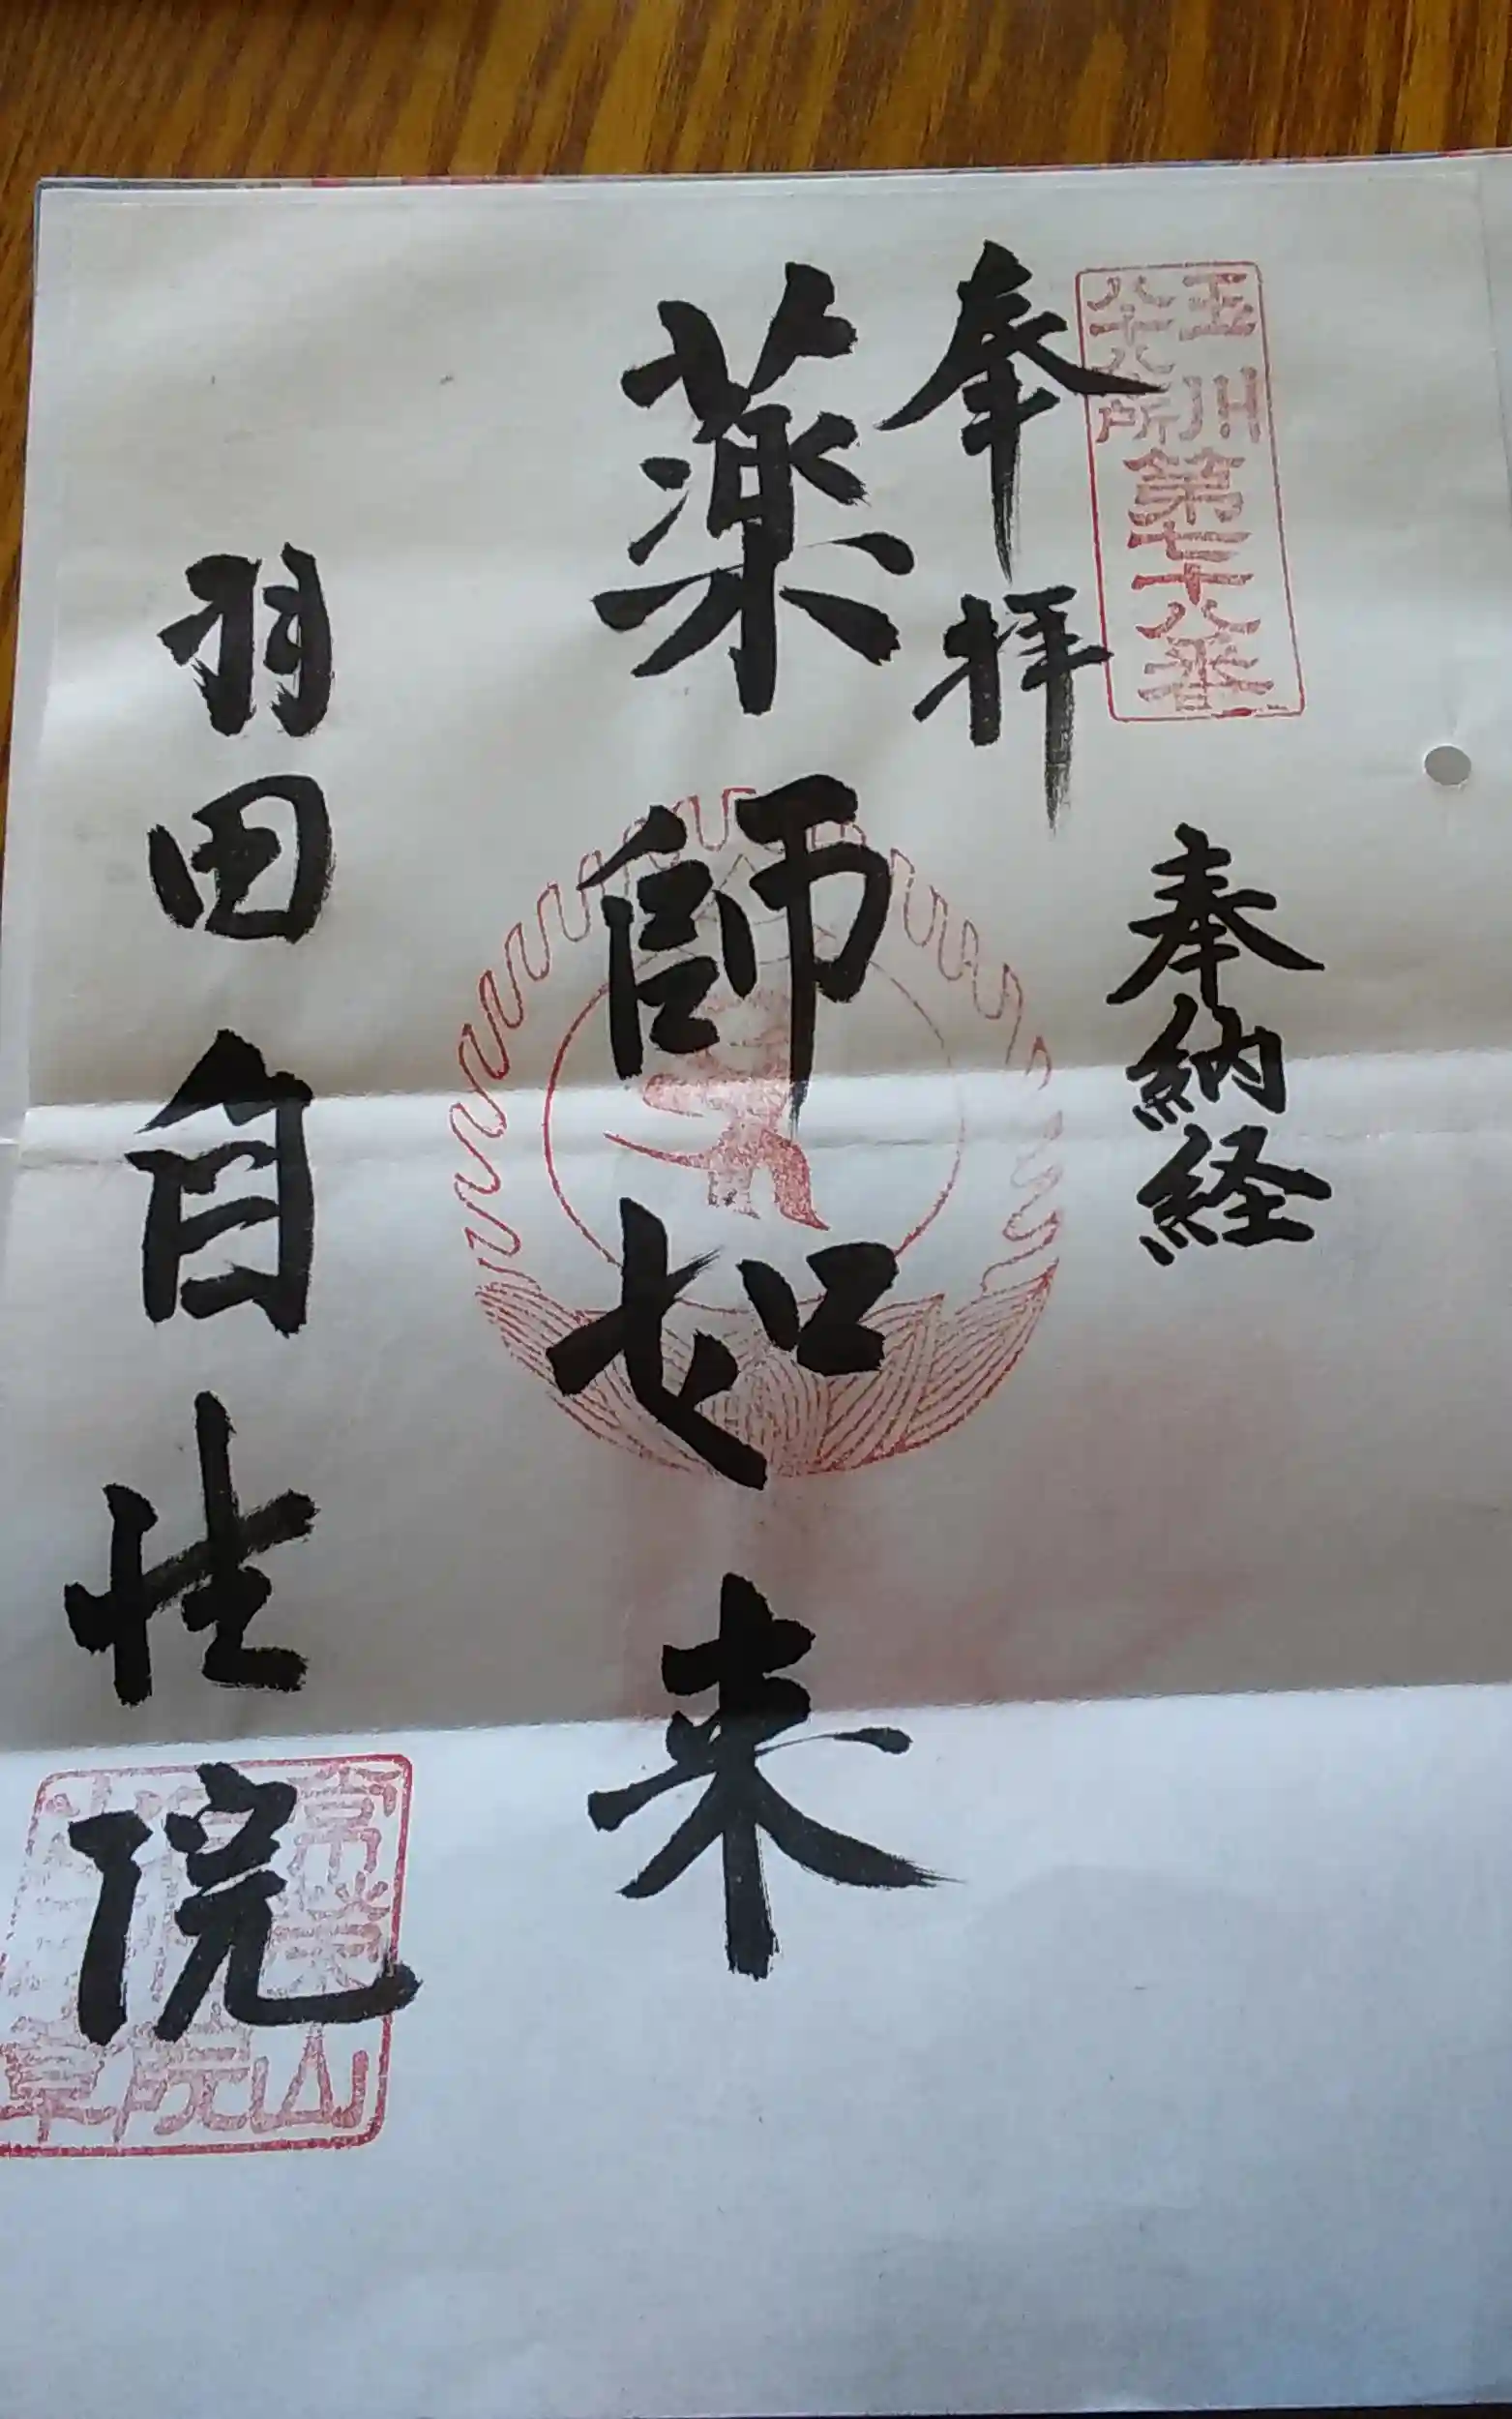 玉川
八十八所
第七十八番
奉納経
奉拝
薬師如来
羽田自性院
常栄山
院
章